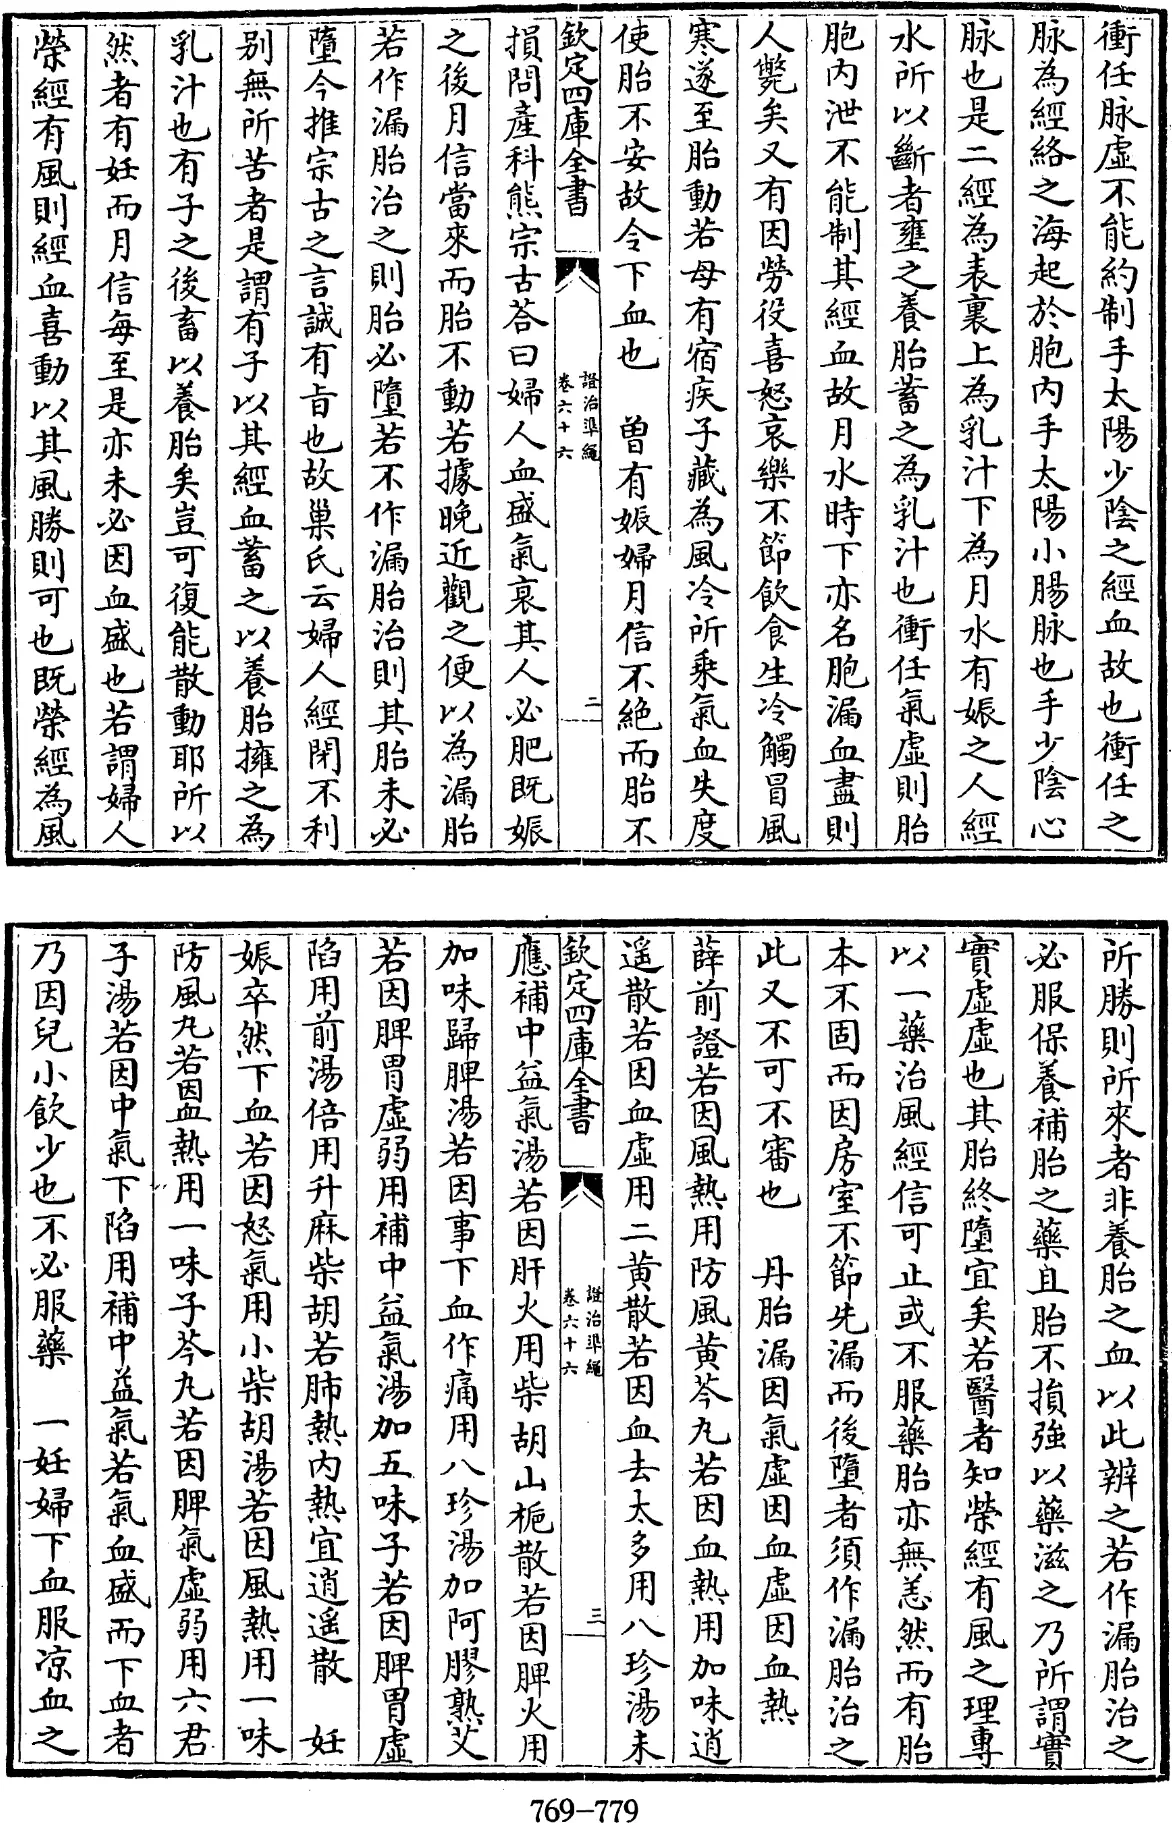 衝任脉虚不能約制手太陽少陰之經血故也衝任之
脉為經絡之海起於胞内手太陽小腸脉也手少陰心
脉也是二經為表裏上為乳汁下為月水有娠之人經
水所以斷者壅之養胎蓄之為乳汁也衝任氣虚則胎
胞内泄不能制其經血故月水時下亦名胞漏血盡則
人斃矣又有因勞役喜怒哀樂不節飲食生冷觸冒風
寒遂至胎動若母有宿疾子藏為風冷所乘氣血失度
使胎不安故令下血也　曽有娠婦月信不絶而胎不
欽定四庫全書
證治準繩
卷六十六
二
損問產科熊宗古荅曰婦人血盛氣衰其人必肥既娠
之後月信當來而胎不動若據晚近觀之便以為漏胎
若作漏胎治之則胎必墮若不作漏胎治則其胎未必
墮今推宗古之言誠有旨也故巢氏云婦人經閉不利
别無所苦者是謂有子以其經血蓄之以養胎擁之為
乳汁也有子之後畜以養胎矣豈可復能散動耶所以
然者有妊而月信每至是亦未必因血盛也若謂婦人
榮經有風則經血喜動以其風勝則可也既榮經為風
所勝則所來者非養胎之血以此辨之若作漏胎治之
必服保養補胎之藥且胎不損強以藥滋之乃所謂實
實虚虚也其胎終墮宜矣若醫者知榮經有風之理專
以一藥治風經信可止或不服藥胎亦無恙然而有胎
本不固而因房室不節先漏而後墮者須作漏胎治之
此又不可不審也　丹胎漏因氣虚因血虚因血熱
薛前證若因風熱用防風黄芩丸若因血熱用加味逍
遥散若因血虚用二黄散若因血去太多用八珍湯未
欽定四庫全書
證治準繩
卷六十六
三
應補中益氣湯若因肝火用柴胡山梔散若因脾火用
加味歸脾湯若因事下血作痛用八珍湯加阿膠熟艾
若因脾胃虚弱用補中益氣湯加五味子若因脾胃虚
陷用前湯倍用升麻柴胡若肺熱内熱宜逍遥散　妊
娠卒然下血若因怒氣用小柴胡湯若因風熱用一味
防風丸若因血熱用一味子芩丸若因脾氣虚弱用六君
子湯若因中氣下陷用補中益氣若氣血盛而下血者
乃因兒小飲少也不必服藥　一妊婦下血服凉血之
769-779